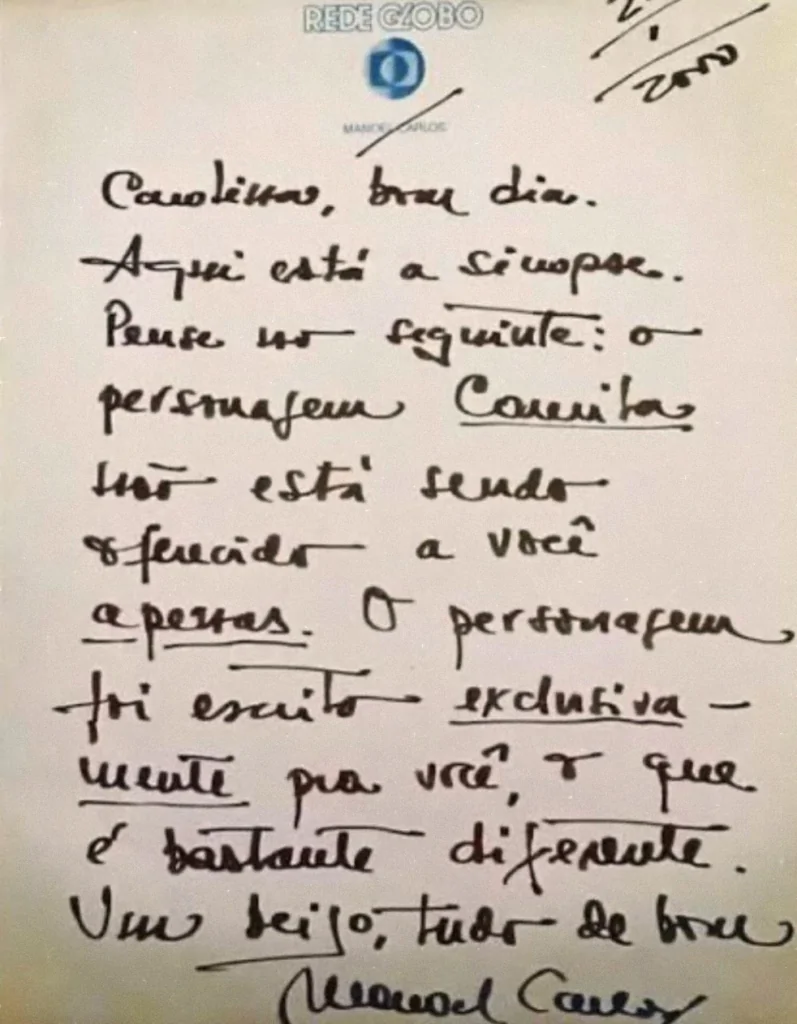 REDE GLOBO
2000
MANOEL CARLOS
Carolina, bom dia.
Aqui está a sinopse.
Pense no seguinte: o
personagem Camila
não está sendo
oferecido a você
apenas. O personagem
foi escrito exclusiva-
mente pra você, o que
é bastante diferente.
Um beijo, tudo de bom
Manoel Carlos